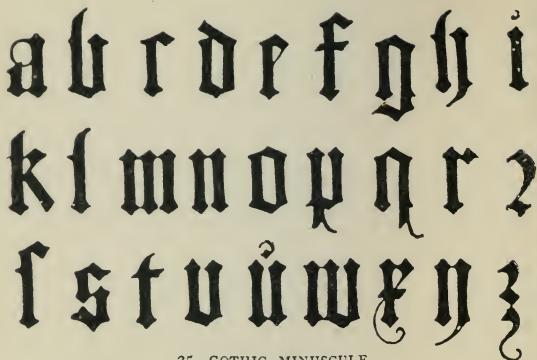 a b c d e f g h i
k l m n o p q r ꝛ
ſ s t v ů w x y z
35. GOTHIC MINUSCULE